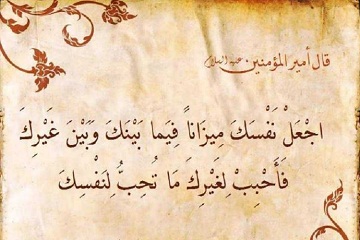 قال أمير المؤمنين عليه السلام
اجْعَلْ نَفْسَكَ مِيزَاناً فِيمَا بَيْنَكَ وَبَيْنَ غَيْرِكَ
فَأَحْبِبْ لِغَيْرِكَ مَا تُحِبُّ لِنَفْسِكَ